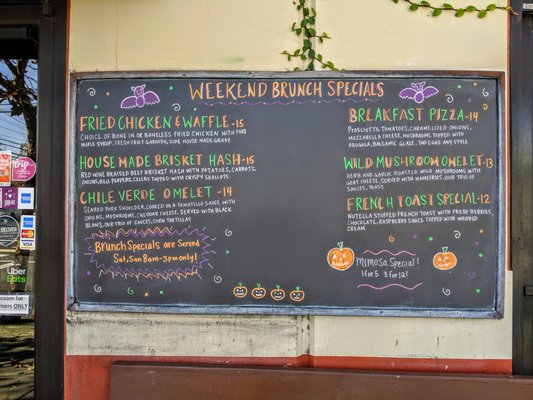 WEEKEND BRUNCH SPECIALS
FRIED CHICKEN & WAFFLE - 15
CHOICE OF BONE IN OR BONELESS FRIED CHICKEN WITH PURE
MAPLE SYRUP, FRESH FRUIT GARNISH, SIDE HOUSE MADE GRAVY.
HOUSE MADE BRISKET HASH - 15
RED WINE BRAISED BEEF BRISKET HASH WITH POTATOES, CARROTS,
ONIONS, BELL PEPPERS, CELERY TOPPED WITH CRISPY SHALLOTS.
CHILE VERDE OMELET - 14
SEARED PORK SHOULDER, COOKED IN A TOMATILLO SAUCE WITH
ONIONS, MUSHROOMS, CHEDDAR CHEESE, SERVED WITH BLACK
BEANS, OUR TRIO OF SAUCES, CORN TORTILLAS
BRUNCH SPECIALS ARE SERVED
SAT, SUN 8AM-3PM ONLY!
BREAKFAST PIZZA - 14
PROSCIUTTO, TOMATOES, CARAMELIZED ONIONS,
MOZZARELLA CHEESE, MUSHROOMS, TOPPED WITH
ARUGULA, BALSAMIC GLAZE, TWO EGGS ANY STYLE
WILD MUSHROOM OMELET - 13
HERB AND GARLIC ROASTED WILD MUSHROOMS WITH
GOAT CHEESE, SERVED WITH HOMEFRIES, OUR TRIO OF
SAUCES, TOAST
FRENCH TOAST SPECIAL - 12
NUTELLA STUFFED FRENCH TOAST WITH FRESH BERRIES,
CHOCOLATE, RASPBERRY SAUCE TOPPED WITH WHIPPED
CREAM
MIMOSA SPECIAL!
1 FOR 5 3 FOR 12!
trip
VISA
Uber
Eats
room for
mers ONLY